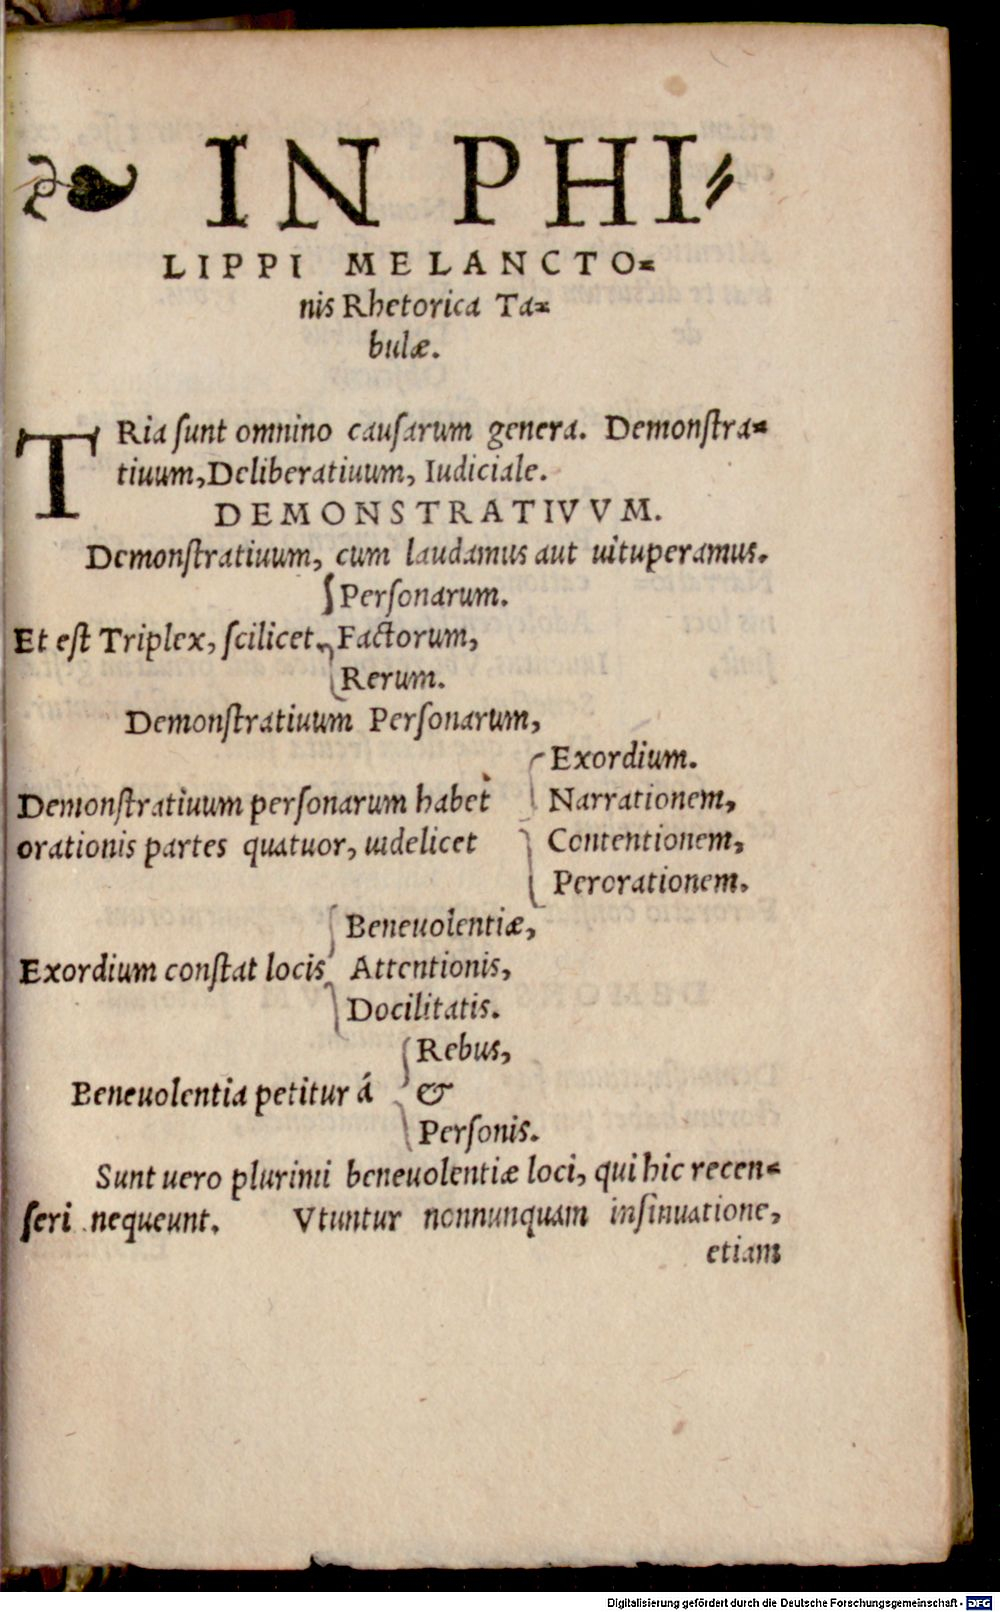 ❧ IN PHI⸗
LIPPI MELANCTO⸗
nis Rhetorica Ta⸗
bulæ.
TRia ſunt omnino cauſarum genera. Demonſtra⸗
tiuum, Deliberatiuum, Iudiciale.
DEMONSTRATIVVM.
Demonſtratiuum, cum laudamus aut uituperamus.
Perſonarum.
Et eſt Triplex, ſcilicet, Factorum,
Rerum.
Demonſtratiuum Perſonarum,
Exordium.
Demonſtratiuum perſonarum habet Narrationem,
orationis partes quatuor, uidelicet Contentionem,
Perorationem.
Beneuolentiæ,
Exordium conſtat locis Attentionis,
Docilitatis.
Rebus,
Beneuolentia petitur á &
Perſonis.
Sunt uero plurimi beneuolentiæ loci, qui hic recen⸗
ſeri nequeunt. Vtuntur nonnunquam inſinuatione,
etiam
Digitalisierung gefördert durch die Deutsche Forschungsgemeinschaft - DFG